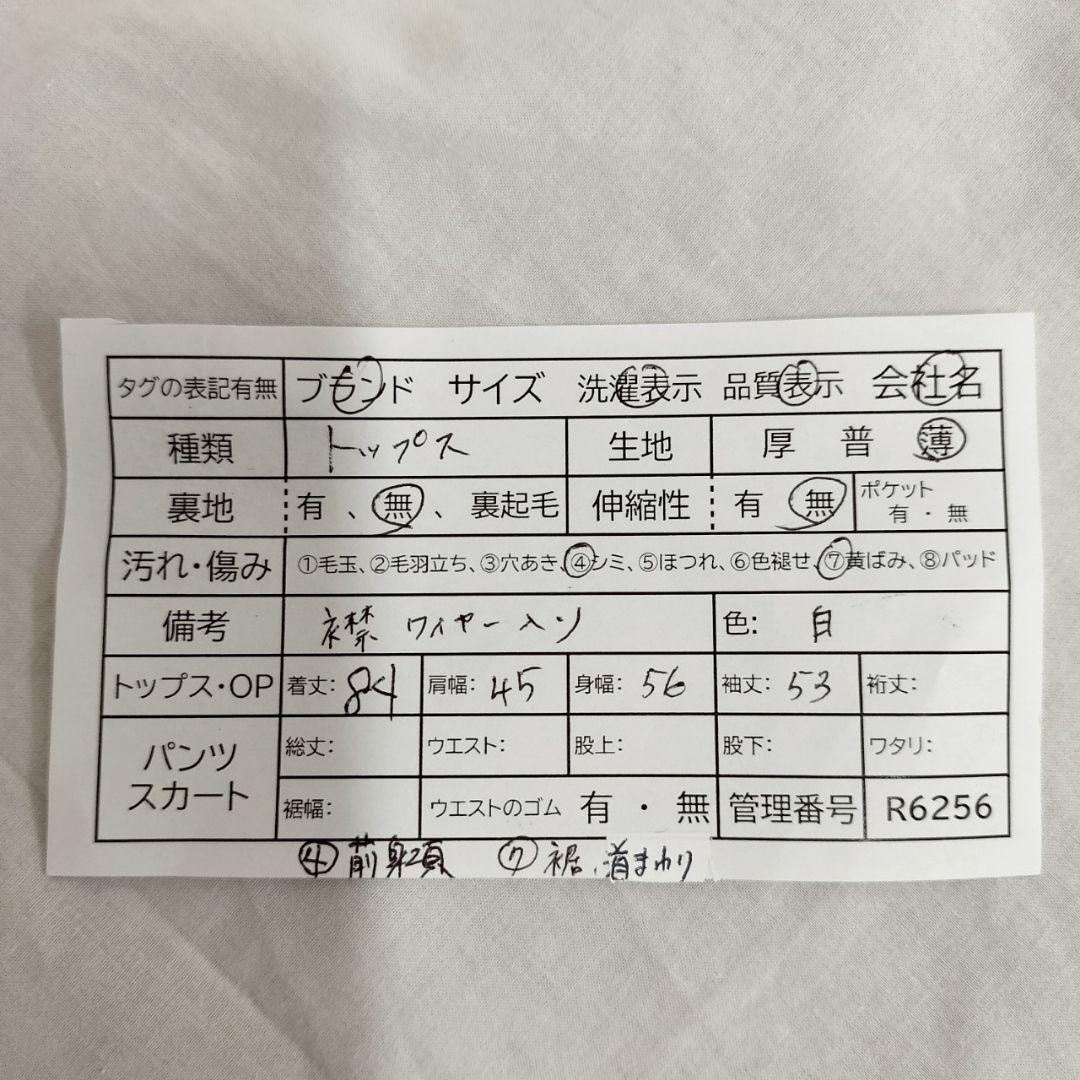 タグの表記有無 ブランド サイズ 洗濯表示 品質表示 会社名
種類 トップス 生地 厚 普 薄
裏地 有 、 無 、 裏起毛 伸縮性 有 無 ポケット 有 ・ 無
汚れ・傷み ①毛玉、②毛羽立ち、③穴あき、④シミ、⑤ほつれ、⑥色褪せ、⑦黄ばみ、⑧パッド
備考 襟 ワイヤー入り 色: 白
トップス・OP 着丈: 84 肩幅: 45 身幅: 56 袖丈: 53 裄丈:
パンツ スカート 総丈: ウエスト: 股上: 股下: ワタリ:
裾幅: ウエストのゴム 有 ・ 無 管理番号 R6256
④ 前身頃 ⑦ 裾、まわり